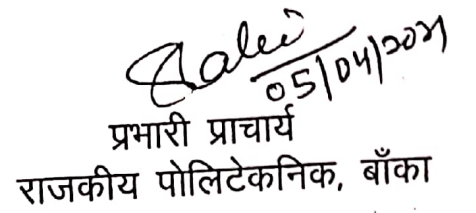 05/04/2021
प्रभारी प्राचार्य
राजकीय पोलिटेकनिक, बाँका